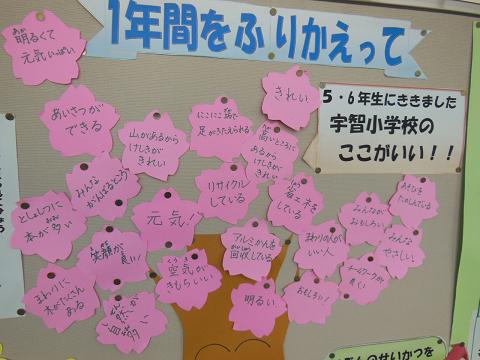 1年間をふりかえって
5・6年生にききました
宇智小学校の
ここがいい！！
明るくて
元気いっぱい
あいさつが
できる
山があるから
けしきが
きれい
にこにこ笑顔で
足がきたえられる
きれい
高いところに
あるから
けしきが
きれい
としょしつに
本が多い
みんな
がんばるところ
元気！
リサイクル
している
省エネを
している
みんなが
おもしろい
あそびを
たのしんでいる
笑顔が
良い！
空気が
きもちいい
アルミかんを
回収している
まわりの人が
いい人
みんな
やさしい
チームワークが
良い
まわりに
木がたくさん
ある
自然が
多い
明るい
おもしろい！
のせいかつを